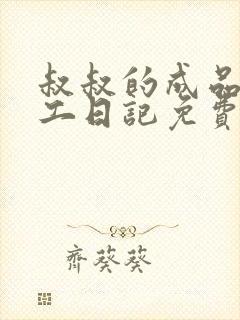 叔叔的成品
工日記免費
齊葵葵